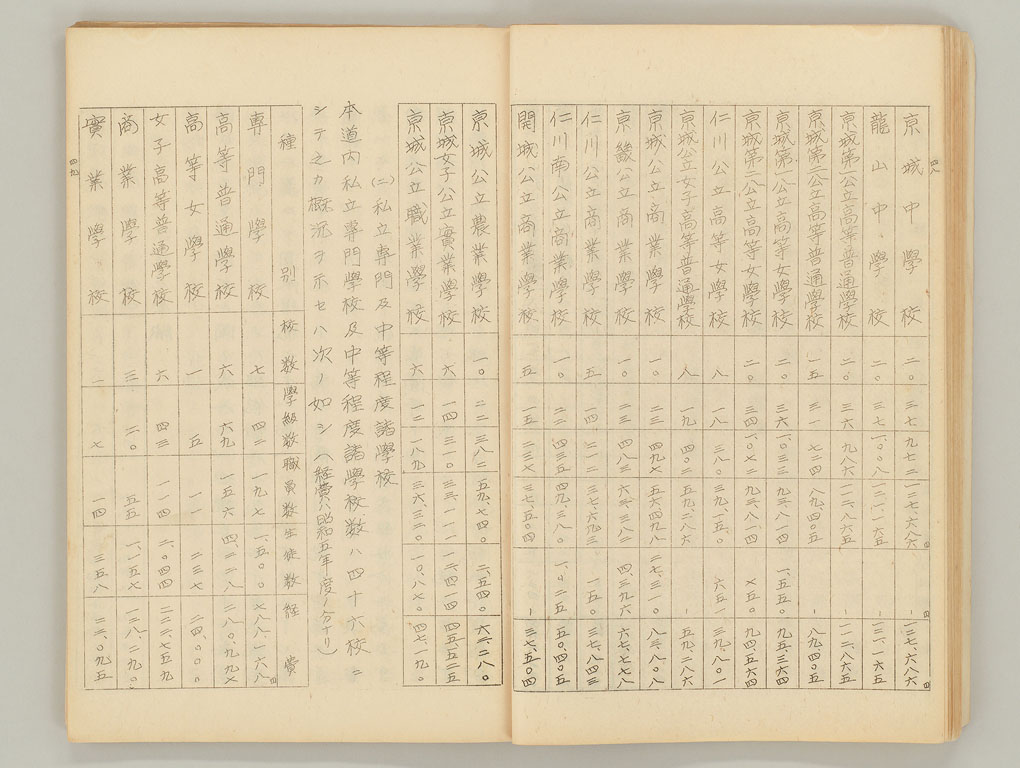 四八
京城中學校 二〇 三七 九七二 一三七、六八六円 ー 一三七、六八六円
龍山中學校 二〇 三七 一、〇〇八 一三一、一六五 ー 一三一、一六五
京城第一公立高等普通學校 二〇 三六 九八六 一一二、八六五 ー 一一二、八六五
京城第二公立高等普通學校 一五 三一 七三四 八九、四〇五 ー 八九、四〇五
京城第一公立高等女學校 二〇 三六 一、〇三三 九三、八一四 一、五五〇 九五、三六四
京城第二公立高等女學校 二〇 三四 一、〇七二 九三、八一四 七五〇 九四、五六四
仁川公立高等女學校 八 一八 三八〇 三九、一五〇 六五一 三九、八〇一
京城公立女子高等普通學校 八 一九 四〇二 五九、二八六 ー 五九、二八六
京城公立商業學校 一〇 二三 四九七 五六、四九八 二七、三一〇 八三、八〇八
京畿公立商業學校 一〇 二三 四八三 六三、三八二 四、三九六 六七、七七八
仁川公立商業學校 五 一四 二一二 三七、六九三 一五〇 三七、八四三
仁川南公立商業學校 一〇 二二 四三五 四九、三八〇 一、〇二五 五〇、四〇五
開城公立商業學校 五 一五 二三七 三七、五〇四 ー 三七、五〇四
京城公立農業學校 一〇 二二 三八二 五九、七四〇 二、五四〇 六二、二八〇
京城女子公立實業學校 六 一四 三一〇 三三、一一一 一二、四一四 四五、五二五
京城公立職業學校 六 一二 一八九 三六、三二〇 一〇、八七〇 四七、一九〇
(二)私立專門及中等程度諸學校
本道内私立專門學校及中等程度諸學校数ハ四十六校ニ
シテ之カ概況ヲ示セハ次ノ如シ(経費ハ昭五年度ノ分ナリ)
種別 校数 學級数 職員数 生徒数 経費
專門學校 七 四二 一九七 一、五〇〇 七八八、一六八円
高等普通學校 六 六九 一五六 四、二二八 二八〇、九九七
高等女學校 一 五 一一 二三七 二四、〇〇〇
女子高等普通學校 六 四三 一一四 二、〇四四 二二二、七五九
商業學校 三 二〇 五五 一、一五七 一二八、二九〇
實業學校 二 七 一四 三五八 二二、〇九五
四九